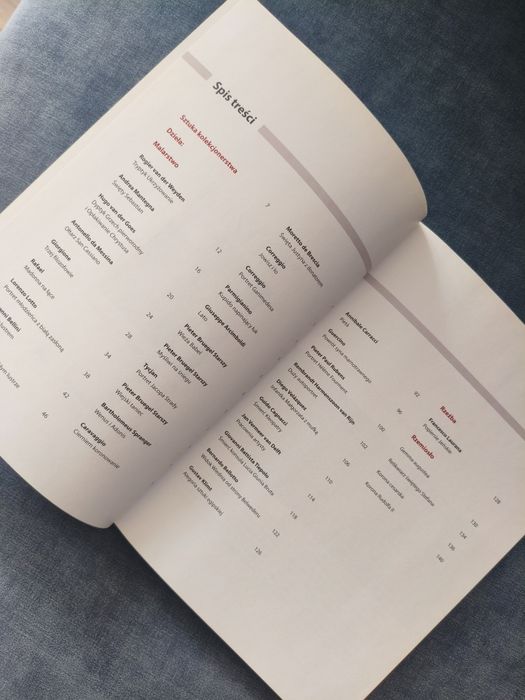 Spis treści
Sztuka kolekcjonerstwa
7
Dzieła:
Malarstwo
Rogier van der Weyden
Tryptyk Ukrzyżowanie
12
Andrea Mantegna
Święty Sebastian
16
Hugo van der Goes
Dyptyk Grzech pierworodny
i Opłakiwanie Chrystusa
20
Antonello da Messina
Ołtarz San Cassiano
24
Giorgione
Trzej filozofowie
28
Rafael
Madonna na łące
34
Lorenzo Lotto
Portret młodzieńca z białą zasłoną
38
Bellini
lustrem
42
lustrze
46
Moretto da Brescia
Święta Justyna z donatorem
Correggio
Jowisz i Io
Correggio
Porwanie Ganimedesa
Parmigianino
Kupido napinający łuk
Giuseppe Arcimboldi
Lato
Pieter Bruegel Starszy
Wieża Babel
Pieter Bruegel Starszy
Myśliwi na śniegu
Tycjan
Portret Jacopa Strady
Pieter Bruegel Starszy
Wiejski taniec
Bartholomeus Spranger
Wenus i Adonis
Caravaggio
Cierniem koronowanie
Annibale Carracci
Pietà
92
Guercino
Powrót syna marnotrawnego
96
Pieter Paul Rubens
Portret Heleny Fourment
100
Rembrandt Harmenszoon van Rijn
Duży autoportret
102
Diego Velázquez
Infantka Małgorzata z mufką
106
Guido Cagnacci
Śmierć Kleopatry
110
Jan Vermeer van Delft
Pracownia artysty
114
Giovanni Battista Tiepolo
Śmierć konsula Lucia Giunia Bruta
118
Bernardo Bellotto
Widok Wiednia od strony Belwederu
122
Gustav Klimt
Alegoria sztuki egipskiej
126
Rzeźba
Francesco Laurana
Popiersie
128
Rzemiosło
Gemma augustea
130
Relikwiarz świętego Stefana
134
Korona cesarska
136
Korona Rudolfa II
140